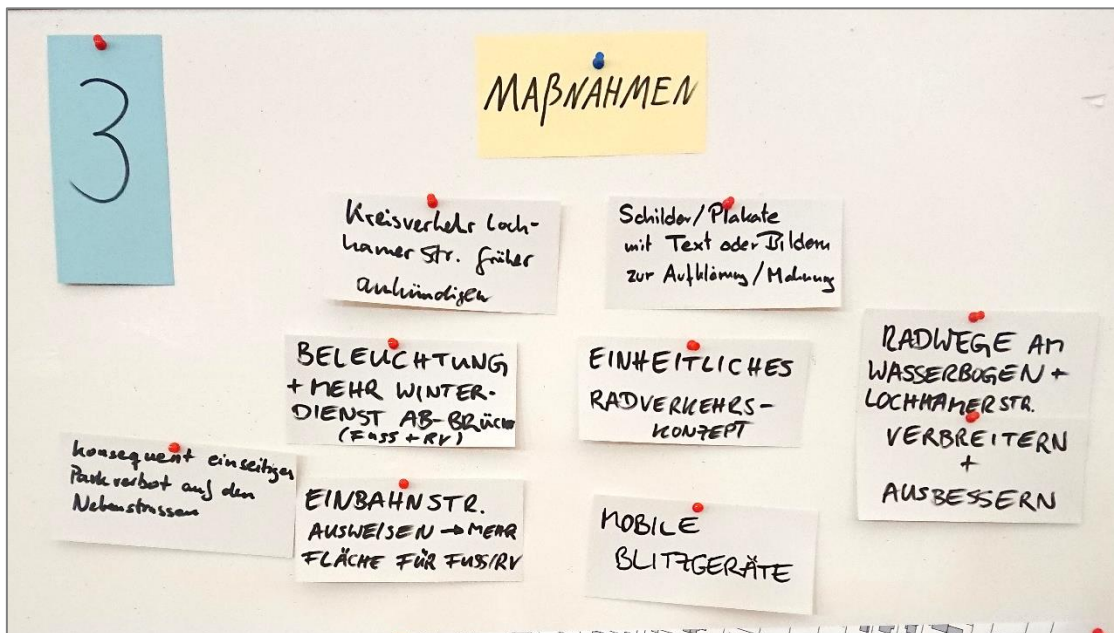 3
MAßNAHMEN
Kreisverkehr Loch-
hamer Str. früher
ankündigen
Schilder/Plakate
mit Text oder Bildern
zur Aufklärung/Mahnung
BELEUCHTUNG
+ MEHR WINTER-
DIENST AB-BRÜCKE
(FUSS + RV)
EINHEITLICHES
RADVERKEHRS-
KONZEPT
RADWEGE AM
WASSERBOGEN +
LOCHHAMERSTR.
VERBREITERN
+
AUSBESSERN
konsequent einseitiges
Parkverbot auf den
Nebenstrassen
EINBAHNSTR.
AUSWEISEN → MEHR
FLÄCHE FÜR FUSS/RV
MOBILE
BLITZGERÄTE